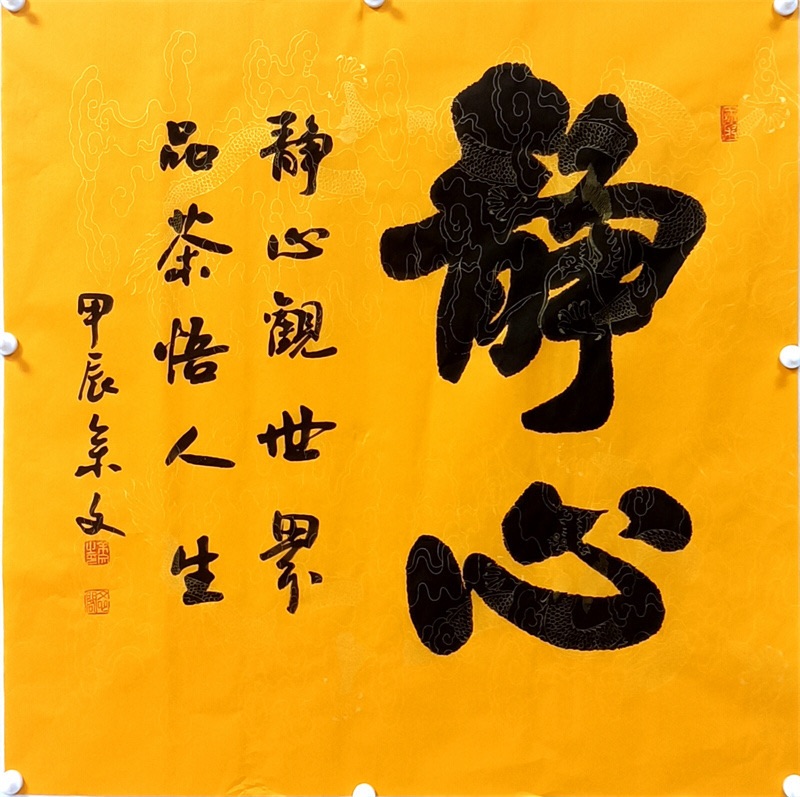 静心
静心觀世界
品茶悟人生
甲辰 文